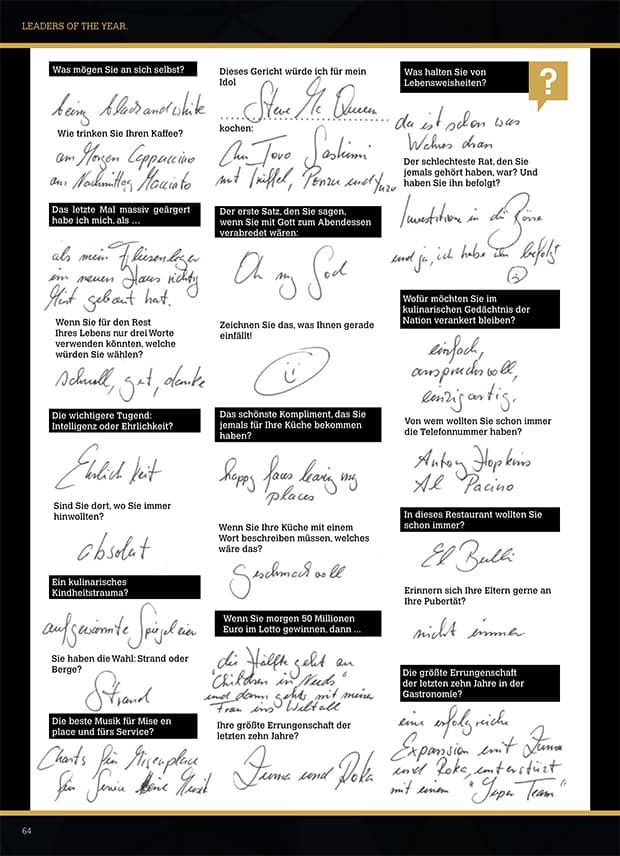 LEADERS OF THE YEAR.
Was mögen Sie an sich selbst?
being black and white
Wie trinken Sie Ihren Kaffee?
am Morgen Cappuccino
am Nachmittag Macciato
Das letzte Mal massiv geärgert
habe ich mich, als ...
als mein Fliesenleger
im neuen Haus richtig
Mist gebaut hat.
Wenn Sie für den Rest
Ihres Lebens nur drei Worte
verwenden könnten, welche
würden Sie wählen?
schnell, gut, danke
Die wichtigere Tugend:
Intelligenz oder Ehrlichkeit?
Ehrlichkeit
Sind Sie dort, wo Sie immer
hinwollten?
absolut
Ein kulinarisches
Kindheitstrauma?
aufgewärmte Spiegeleier
Sie haben die Wahl: Strand oder
Berge?
Strand
Die beste Musik für Mise en
place und fürs Service?
Charts für Miseenplace
für Service keine Musik
Dieses Gericht würde ich für mein
Idol
Steve Mc Queen
kochen:
Chu Toro Sashimi
mit Trüffel, Ponzu und Yuzu
Der erste Satz, den Sie sagen,
wenn Sie mit Gott zum Abendessen
verabredet wären:
Oh my God
Zeichnen Sie das, was Ihnen gerade
einfällt!
Das schönste Kompliment, das Sie
jemals für Ihre Küche bekommen
haben?
happy faces leaving my
places
Wenn Sie Ihre Küche mit einem
Wort beschreiben müssen, welches
wäre das?
Geschmackvoll
Wenn Sie morgen 50 Millionen
Euro im Lotto gewinnen, dann ...
die Hälfte geht an
"Children in Needs"
und dann gehts mit meiner
Frau ins Weltall
Ihre größte Errungenschaft der
letzten zehn Jahre?
Zuma und Roka
?
Was halten Sie von
Lebensweisheiten?
da ist schon was
Wahres dran
Der schlechteste Rat, den Sie
jemals gehört haben, war? Und
haben Sie ihn befolgt?
Investition in die Börse
und ja, ich habe ihn befolgt
Wofür möchten Sie im
kulinarischen Gedächtnis der
Nation verankert bleiben?
einfach,
anspruchsvoll,
einzigartig.
Von wem wollten Sie schon immer
die Telefonnummer haben?
Antony Hopkins
Al Pacino
In dieses Restaurant wollten Sie
schon immer?
El Bulli
Erinnern sich Ihre Eltern gerne an
Ihre Pubertät?
nicht immer
Die größte Errungenschaft
der letzten zehn Jahre in der
Gastronomie?
eine erfolgreiche
Expansion mit Zuma
und Roka, unterstüzt
mit einem "Super Team"
64